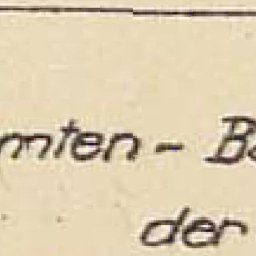 mten - B
der